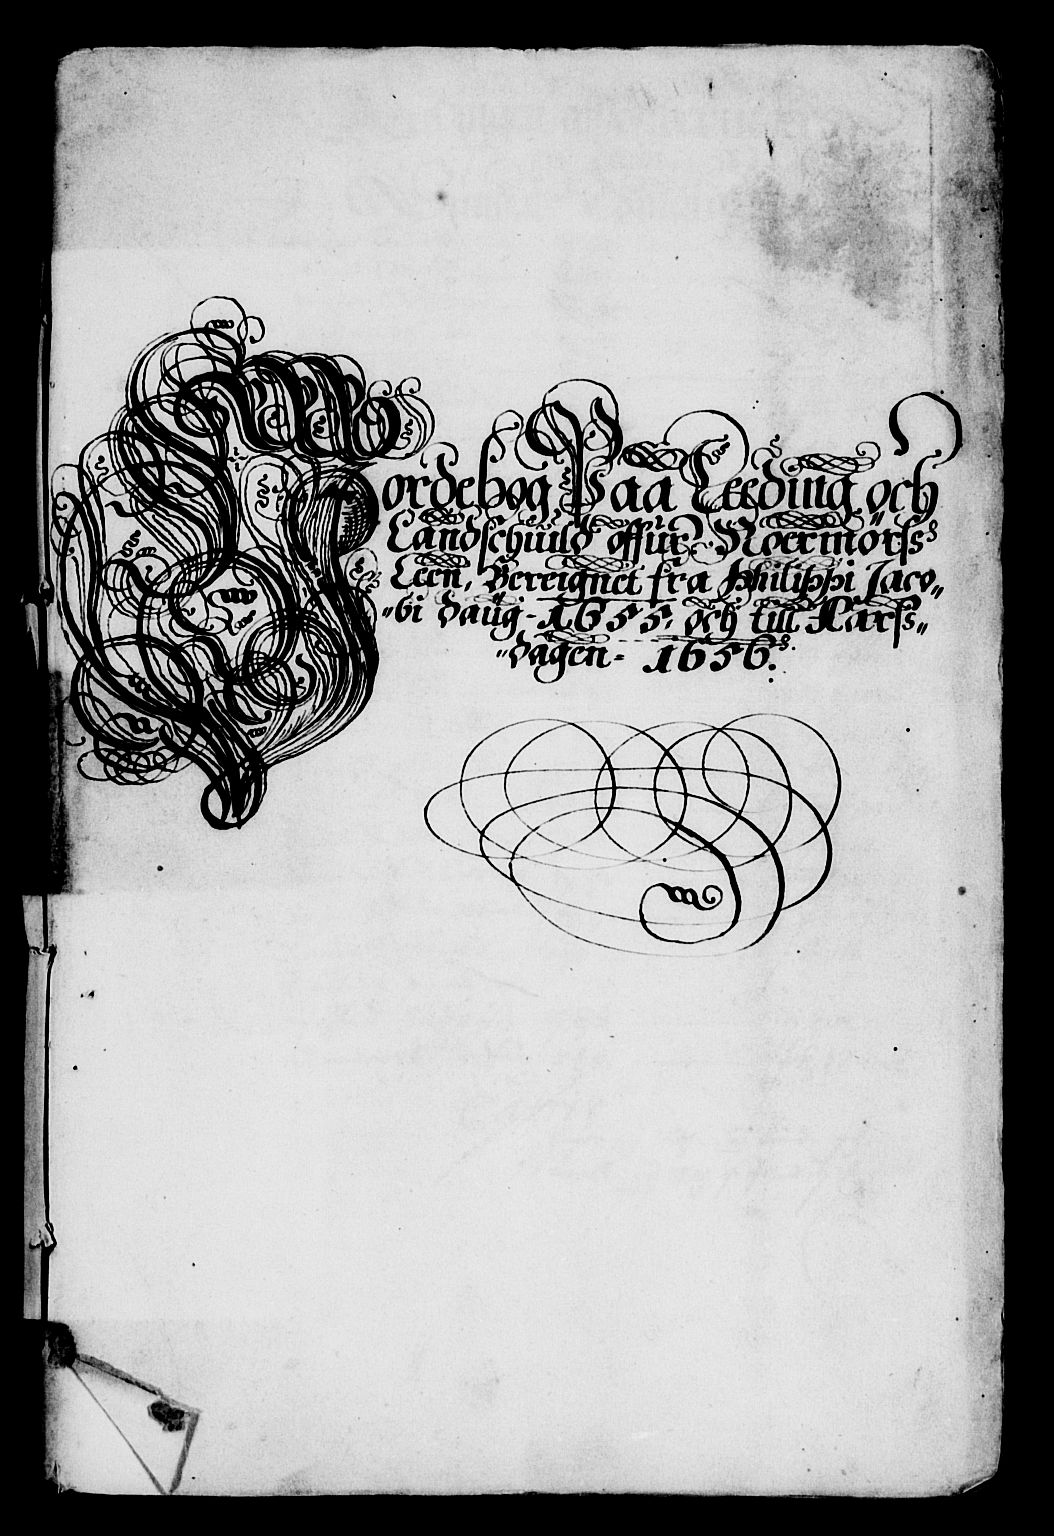 Jordebog Paa Leeding och
Landschüld offür Noermörss
Leen, Bereignet fra Philippi Jaco„
„bi daug - 1655. och till Karss„
„dagen - 1656.